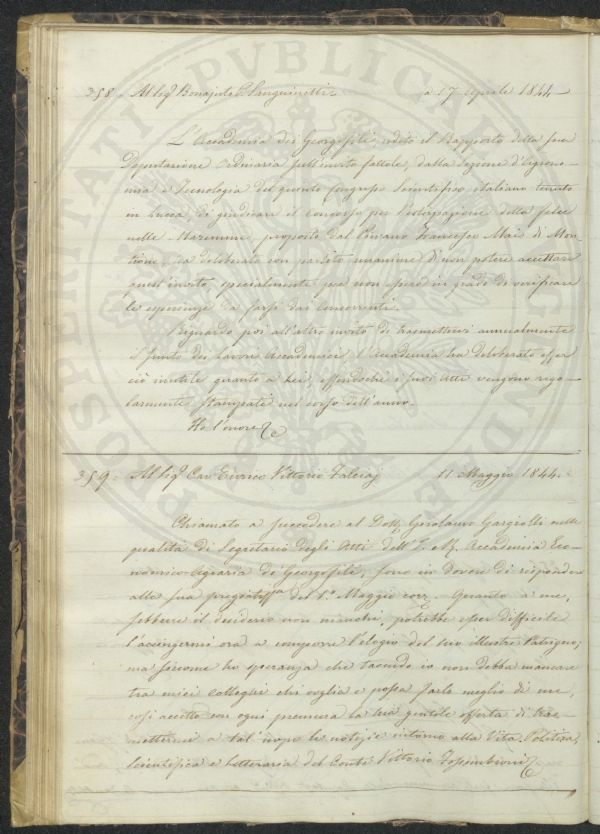 358. Al Sig. Bonajuto P. Sanguinetti a 17 Aprile 1844
L'Accademia dei Georgofili, udito il Rapporto della sua
Deputazione Ordinaria sull'invito fattole, dalla Sezione d'Agrono-
mia e Tecnologia del quinto Congresso Scientifico italiano tenuto
in Lucca, di giudicare il concorso per l'estirpazione della felce
nelle Maremme, proposto dal Pievano Francesco Mai di Mon-
tione, ha deliberato con partito unanime di non potere accettare
quest'invito, specialmente per non essere in grado di verificare
le esperienze da farsi dai concorrenti.
Riguardo poi all'altro invito di trasmettervi annualmente
il sunto dei Lavori Accademici, l'Accademia ha deliberato esser
ciò inutile quanto a Lei, essendochè i suoi Atti vengono rego-
larmente stampati nel corso dell'anno.
Ho l'onore
359. Al Sig. Cav. Enrico Vittorio 11 Maggio 1844.
Chiamato a succedere al Dott. Girolamo Gargiolli nella
qualità di Segretario degli Atti dell'I. e R. Accademia Eco-
nomico-Agraria dei Georgofili, sono in dovere di rispondere
alla sua pregiatissma del 1.o Maggio corr. Quanto a me,
sebbene il desiderio non manchi, potrebbe esser difficile
l'accingermi ora a comporre l'elogio del suo illustre Patrigno;
ma siccome ho speranza che tacendo io non debba mancare
tra miei colleghi chi voglia e possa farlo meglio di me,
così accetto con ogni premura la sua gentile offerta di tras-
mettermi a tal'uopo le notizie intorno alla Vita Politica,
Scientifica e Letteraria del Conte Vittorio Fossombroni